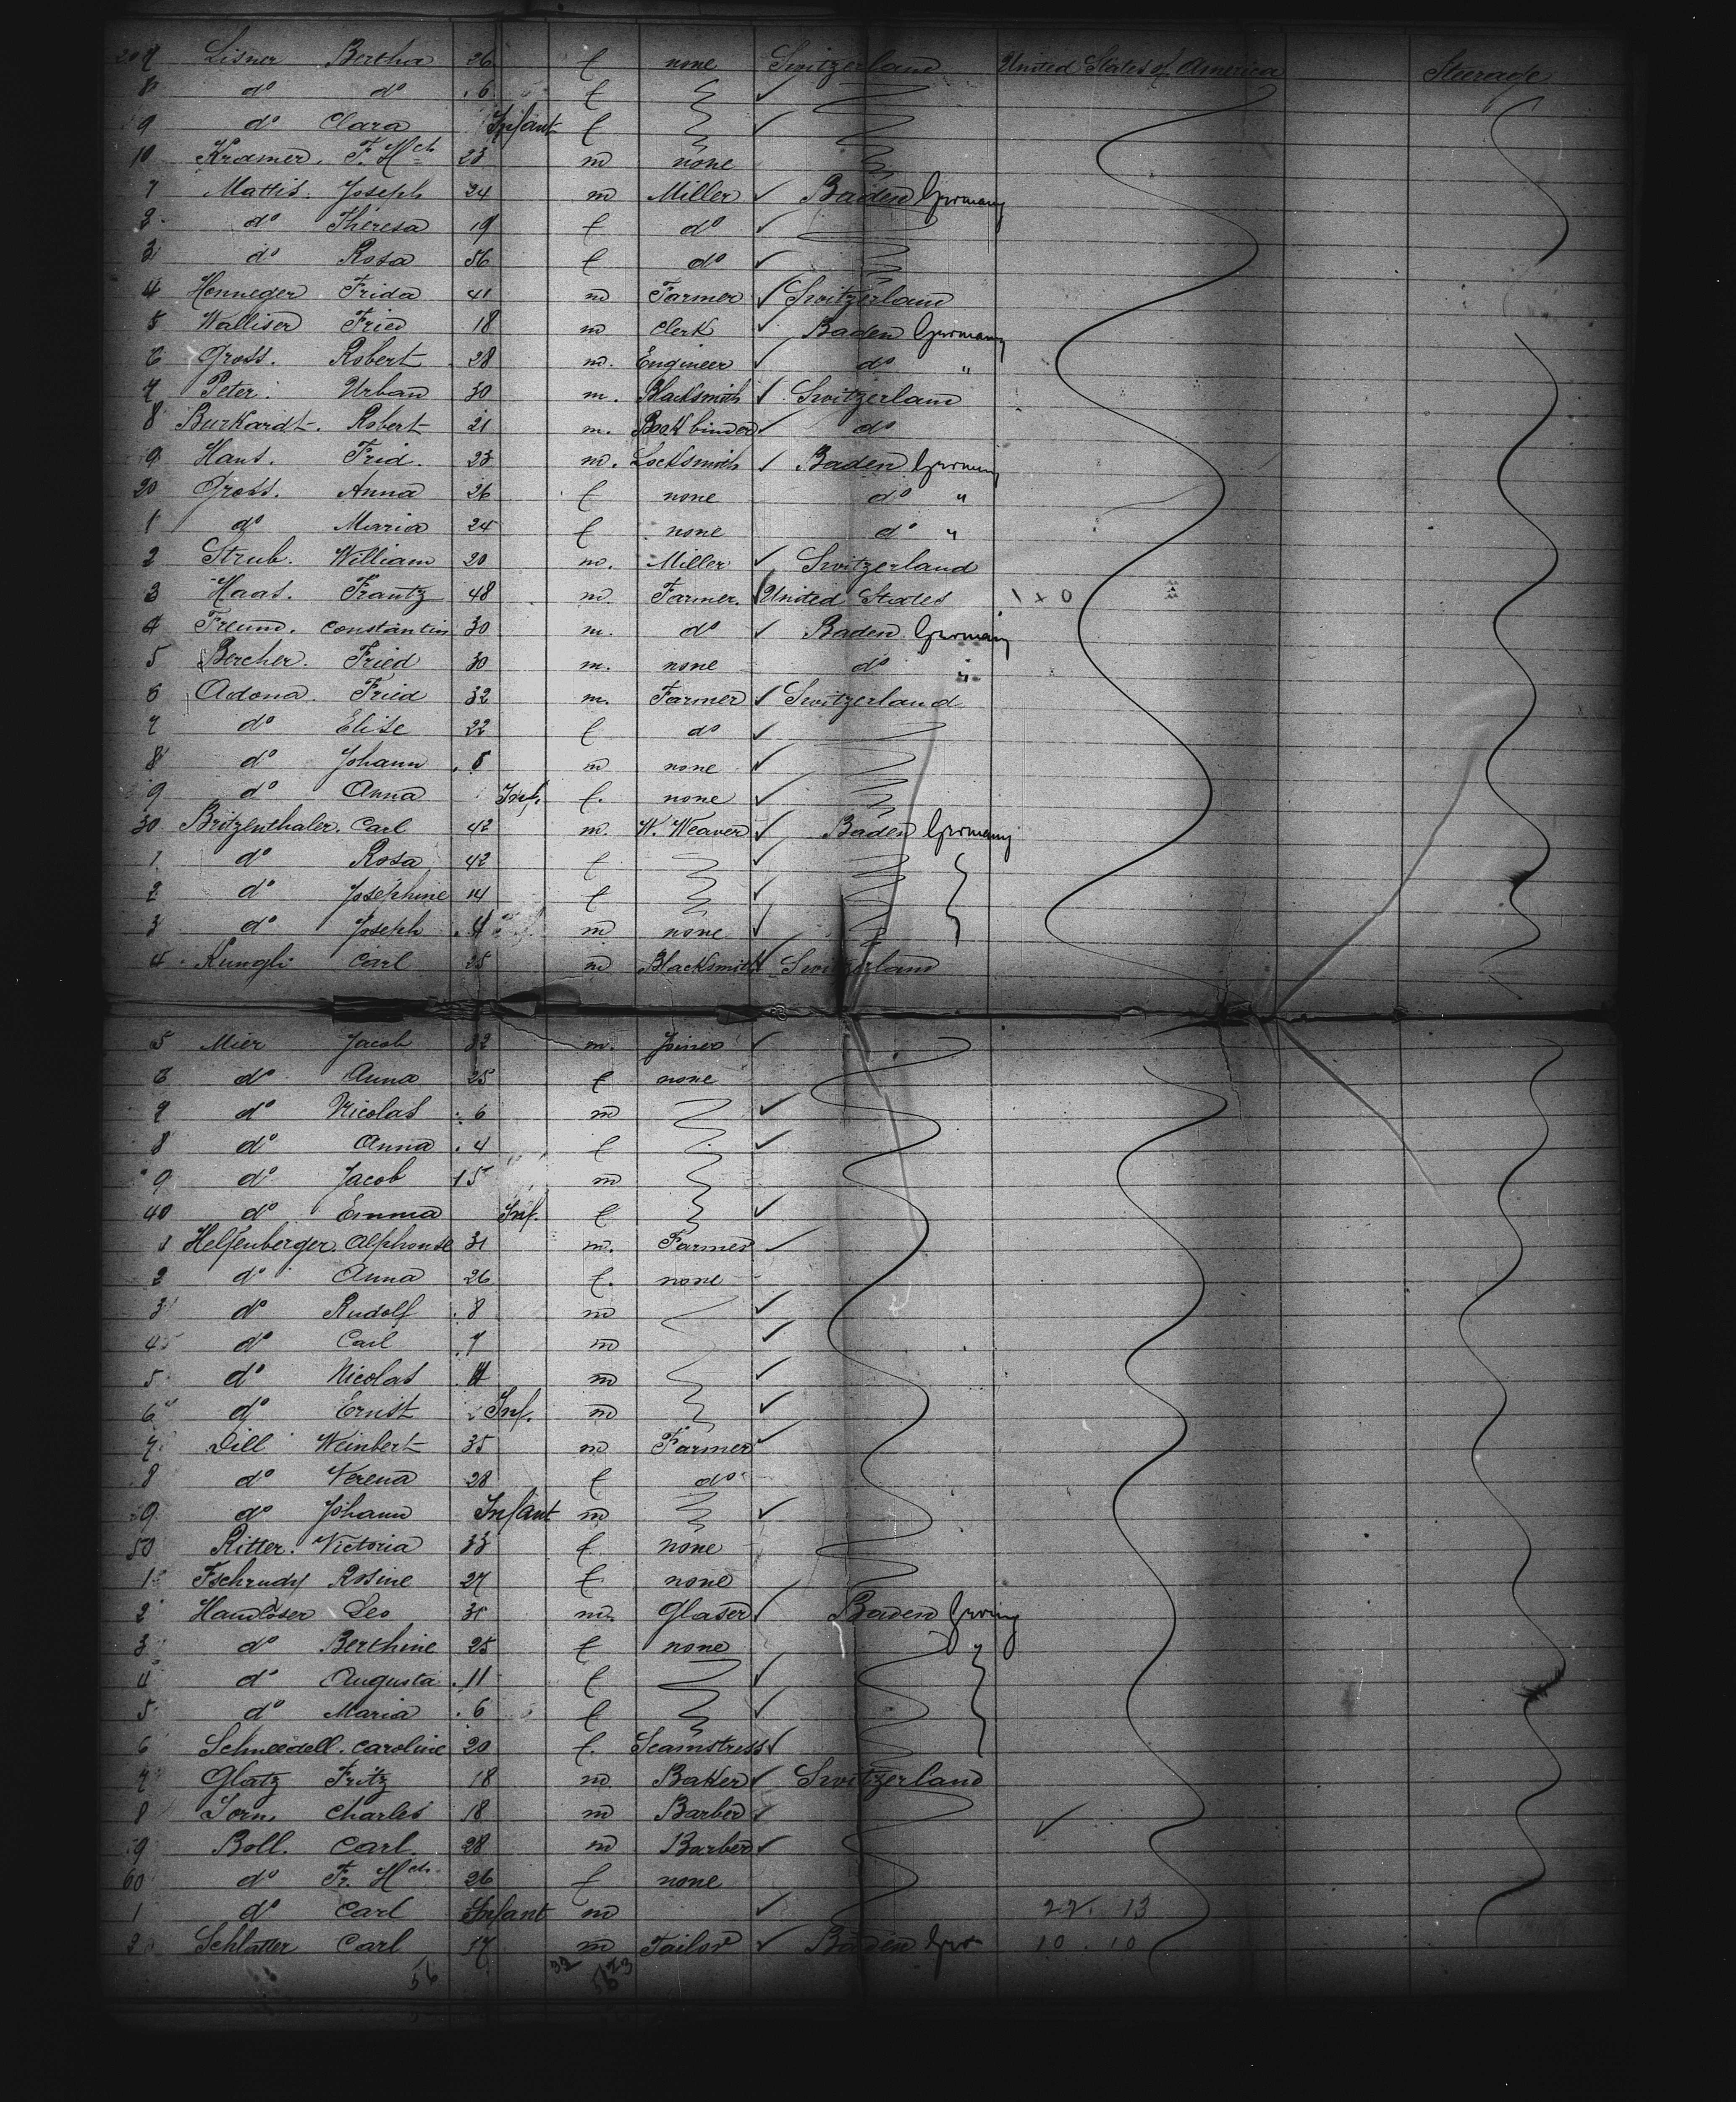 207 Lisner Bertha 26 f none Switzerland United States of America Steerage
8 do do 6 f ✓
9 do Clara Infant f ✓
10 Kramer. F. Hch 23 m none
1 Mattis. Joseph 24 m Miller ✓ Baden Germany
2 do Theresa 19 f do ✓
3 do Rosa 56 f do ✓
4 Honneger Frida 41 m Farmer ✓ Switzerland
5 Walliser Fried 18 m Clerk ✓ Baden Germany
6 Gross. Robert 28 m. Engineer ✓ do "
7 Peter. Urban 30 m. Blacksmith ✓ Switzerland
8 Burkardt. Robert 21 m. Book binder ✓ do
9 Hans. Frid. 23 m. Locksmith ✓ Baden Germany
20 Gross. Anna 26 f none do "
1 do Maria 24 f none do "
2 Strub. William 20 m. Miller ✓ Switzerland
3 Haas. Frantz 48 m. Farmer. ✓ United States 1 x 0
4 Freund. Constantin 30 m. do ✓ Baden. Germany
5 Bercher. Fried 30 m. none do "
6 Adona. Fried 32 m. Farmer ✓ Switzerland
7 do Elise 22 f do ✓
8 do Johann . 5 m none ✓
9 do Anna Inf. f. none ✓
30 Britzenthaler. Carl 42 m. W. Weaver ✓ Baden Germany
1 do Rosa 42 f ✓
2 do Josephine 14 f ✓
3 do Joseph . 4 m none ✓
4 Kungli Carl 25 m Blacksmith ✓ Switzerland
5 Mier Jacob 32 m. Joiner ✓
6 do Anna 25 f none
7 do Nicolas . 6 m ✓
8 do Anna . 4 f ✓
9 do Jacob 15 m
40 do Emma Inf. f ✓
1 Helfenberger. Alphonse 31 m. Farmer ✓
2 do Anna 26 f. none
3 do Rudolf . 8 m ✓
4 do Carl . 7 m ✓
5 do Nicolas . 4 m ✓
6 do Ernst Inf. m ✓
7 Dill Weinbert 35 m Farmer ✓
8 do Verena 28 f do
9 do Johann Infant m ✓
50 Ritter. Victoria 33 f none
1 Tschrudy Rosine 27 f none
2 Handloser Leo 31 m Glaser ✓ Baden Germy
3 do Berthine 25 f none "
4 do Augusta . 11 f ✓
5 do Maria . 6 f ✓
6 Schneedell. Caroline 20 f. Seamstress ✓
7 Glatz Fritz 18 m Baker ✓ Switzerland
8 Charles 18 m Barber ✓ ✓
9 Boll. Carl. 28 m Barber ✓
60 do Fr. Hch. 26 f none
1 do Carl Infant m ✓ 22. 13
2 Schlatter Carl 17 m Tailor ✓ Baden Ger 10. 10
56 32 23
56